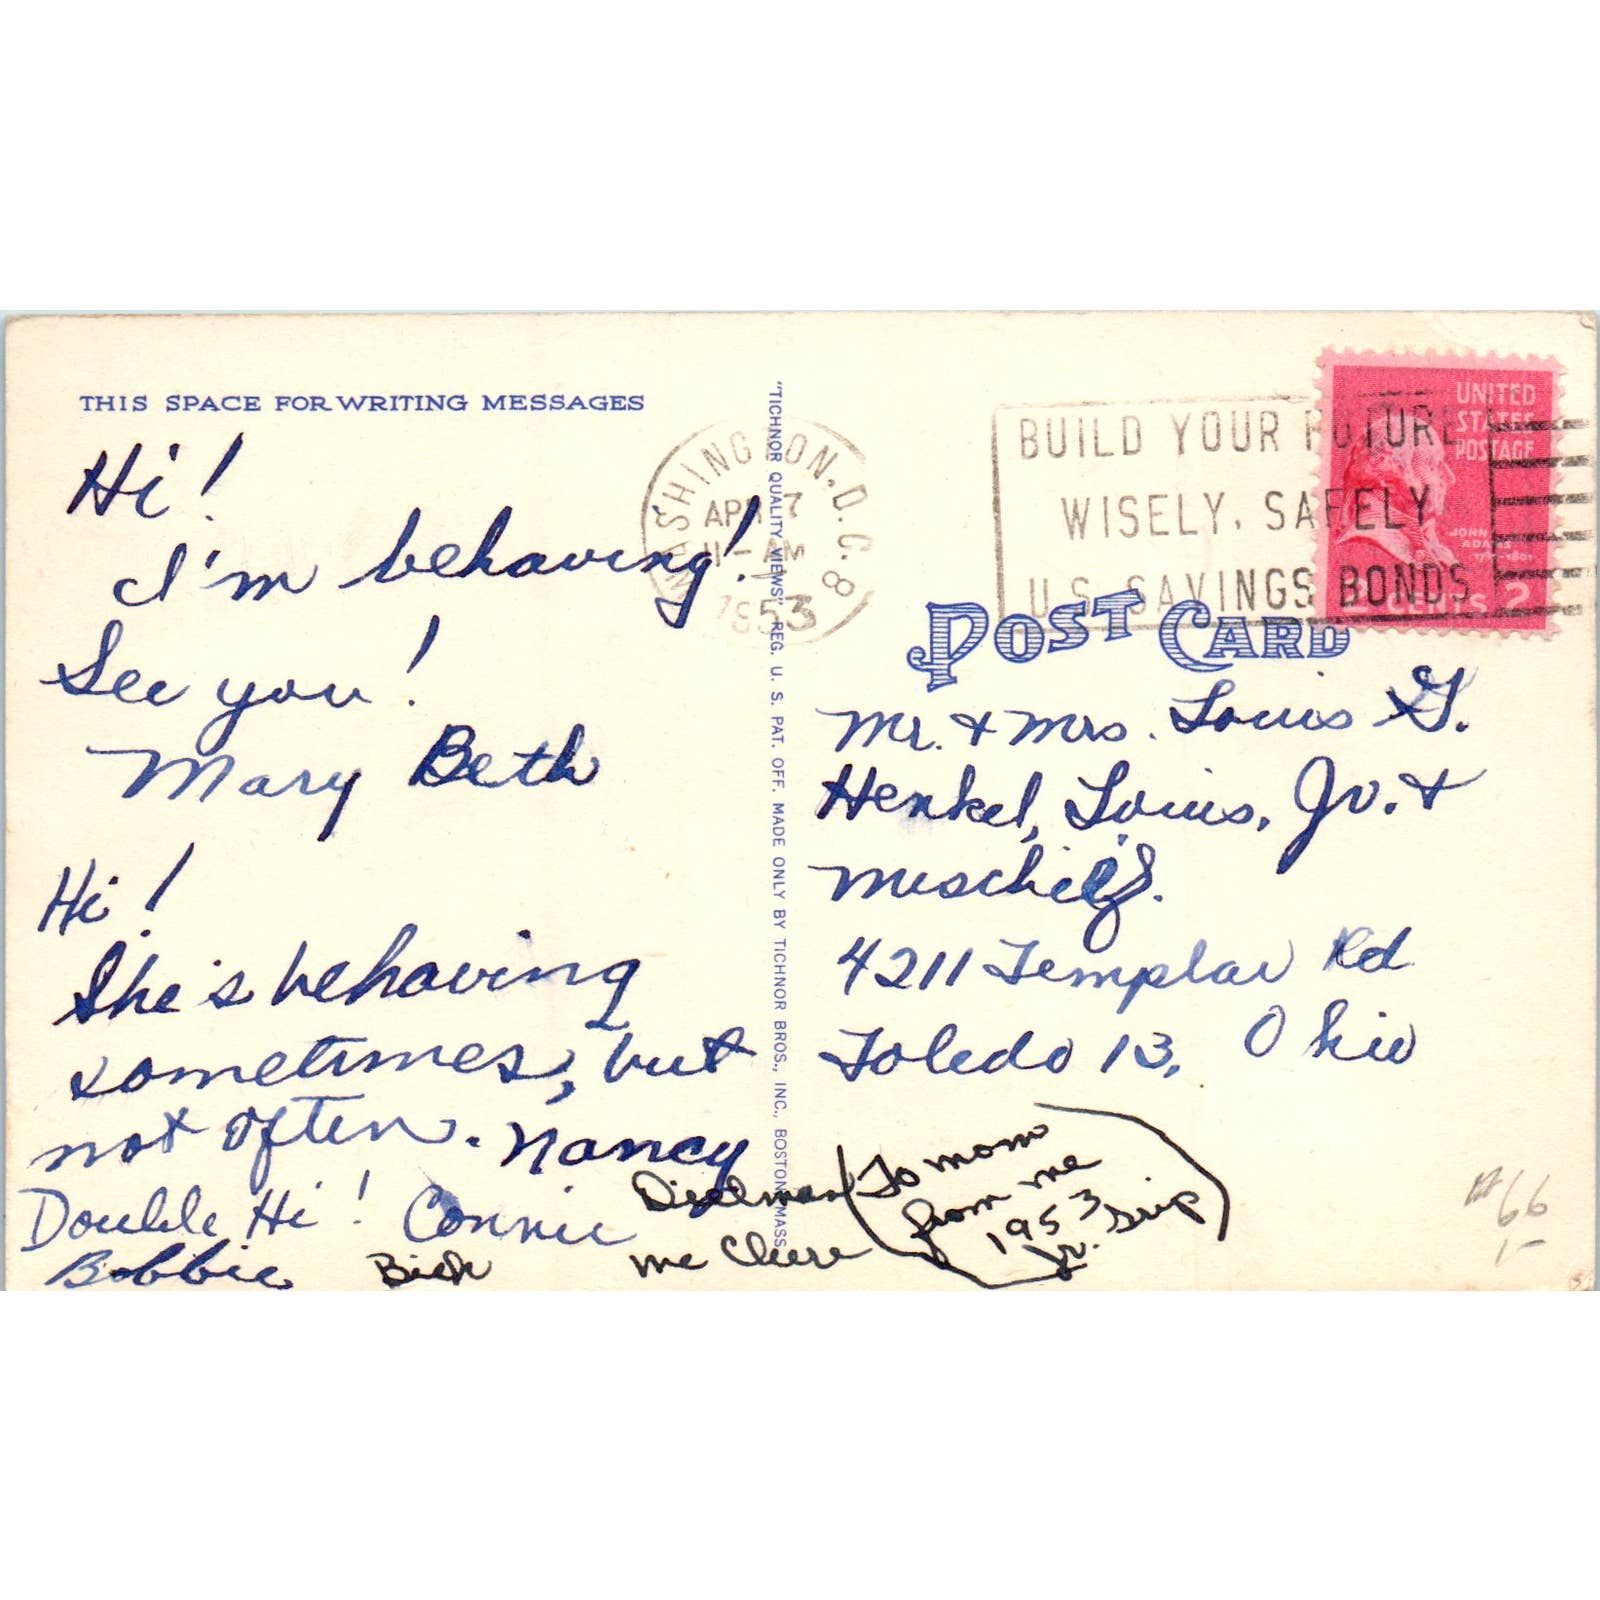 THIS SPACE FOR WRITING MESSAGES
Hi!
I'm behaving!
See you!
Mary Beth
Hi!
She's behaving
sometimes, but
not often. Nancy
Double Hi! Connie Dielman
Bobbie Bick Mc Clure
"TICHNOR QUALITY VIEWS" REG. U. S. PAT. OFF. MADE ONLY BY TICHNOR BROS., INC., BOSTON, MASS.
WASHINGTON, D.C. 8
APR 7
11-AM
1953
BUILD YOUR FUTURE
WISELY, SAFELY
U.S. SAVINGS BONDS
UNITED
STATES
POSTAGE
JOHN
ADAMS
CENTS 2
POST CARD
Mr. & Mrs. Louis G.
Henkel, Louis, Jr. &
Mischief.
4211 Templar Rd
Toledo 13, Ohio
To mom
from me
1953
Jr. trip
#66